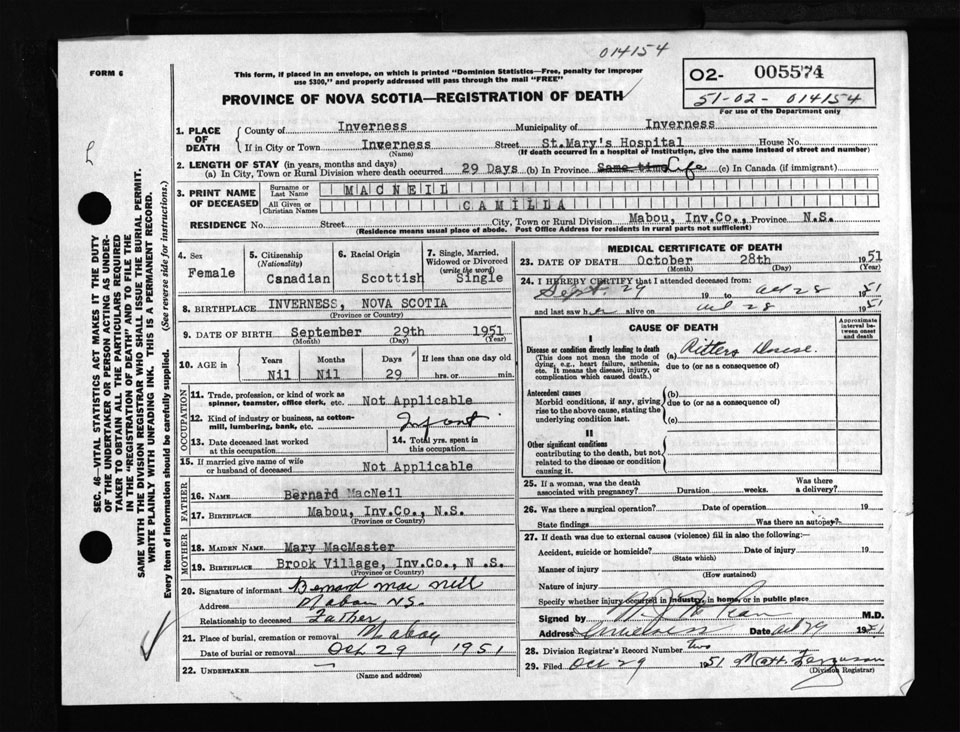 014154
FORM 6
This form, if placed in an envelope, on which is printed "Dominion Statistics—Free, penalty for improper
use $300," and properly addressed will pass through the mail "FREE"
02- 005574
51-02- 014154
For use of the Department only
PROVINCE OF NOVA SCOTIA—REGISTRATION OF DEATH
1. PLACE OF DEATH
County of Inverness Municipality of Inverness
If in City or Town Inverness Street St.Mary's Hospital House No.
(Name) (If death occurred in a hospital of institution, give the name instead of street and number)
2. LENGTH OF STAY (in years, months and days)
(a) In City, Town or Rural Division where death occurred 29 Days (b) In Province Same time Life (c) In Canada (if immigrant)
3. PRINT NAME OF DECEASED
Surname or Last Name MACNEIL
All Given or Christian Names CAMILLA
RESIDENCE No. Street City, Town or Rural Division Mabou, Inv.Co., Province N.S.
(Residence means usual place of abode. Post Office Address for residents in rural parts not sufficient)
4. Sex Female
5. Citizenship (Nationality) Canadian
6. Racial Origin Scottish
7. Single, Married, Widowed or Divorced (write the word) Single
8. BIRTHPLACE INVERNESS, NOVA SCOTIA
(Province or Country)
9. DATE OF BIRTH September 29th 1951
(Month) (Day) (Year)
10. AGE in Years Months Days If less than one day old
Nil Nil 29 hrs. or min.
OCCUPATION
11. Trade, profession, or kind of work as spinner, teamster, office clerk, etc. Not Applicable
12. Kind of industry or business, as cotton-mill, lumbering, bank, etc. Infant
13. Date deceased last worked at this occupation
14. Total yrs. spent in this occupation
15. If married give name of wife or husband of deceased Not Applicable
FATHER
16. NAME Bernard MacNeil
17. BIRTHPLACE Mabou, Inv.Co., N.S.
(Province or Country)
MOTHER
18. MAIDEN NAME Mary MacMaster
19. BIRTHPLACE Brook Village, Inv.Co., N .S.
(Province or Country)
20. Signature of informant Bernard Mac Neill
Address Mabou N.S.
Relationship to deceased Father
21. Place of burial, cremation or removal Mabou
Date of burial or removal Oct. 29 1951
22. UNDERTAKER —
(Name and address)
MEDICAL CERTIFICATE OF DEATH
23. DATE OF DEATH October 28th 1951
(Month) (Day) (Year)
24. I HEREBY CERTIFY that I attended deceased from:
Sept. 29 19 to Oct 28 1951
and last saw her alive on Oct 28 1951
CAUSE OF DEATH
Approximate interval between onset and death
I
Disease or condition directly leading to death
(This does not mean the mode of dying, e.g., heart failure, asthenia, etc. It means the disease, injury, or complication which caused death.)
(a) Ritters Disease.
due to (or as a consequence of)
Antecedent causes
Morbid conditions, if any, giving rise to the above cause, stating the underlying condition last.
(b)
due to (or as a consequence of)
(c)
II
Other significant conditions
contributing to the death, but not related to the disease or condition causing it.
25. If a woman, was the death associated with pregnancy? Duration weeks. Was there a delivery?
26. Was there a surgical operation? Date of operation 19
State findings Was there an autopsy?
27. If death was due to external causes (violence) fill in also the following:—
Accident, suicide or homicide? Date of injury 19
(State which)
Manner of injury
(How sustained)
Nature of injury
Specify whether injury occurred in industry, in home, or in public place
Signed by M.D.
Address Inverness Date Oct 29 1951
28. Division Registrar's Record Number two
29. Filed Oct 29 1951 Ferguson
(Division Registrar)
SEC. 46—VITAL STATISTICS ACT MAKES IT THE DUTY
OF THE UNDERTAKER OR PERSON ACTING AS UNDER-
TAKER TO OBTAIN ALL THE PARTICULARS REQUIRED
IN THE "REGISTRATION OF DEATH" AND TO FILE THE
SAME WITH THE DIVISION REGISTRAR WHO SHALL ISSUE THE BURIAL PERMIT.
WRITE PLAINLY WITH UNFADING INK. THIS IS A PERMANENT RECORD.
Every item of information should be carefully supplied. (See reverse side for instructions.)